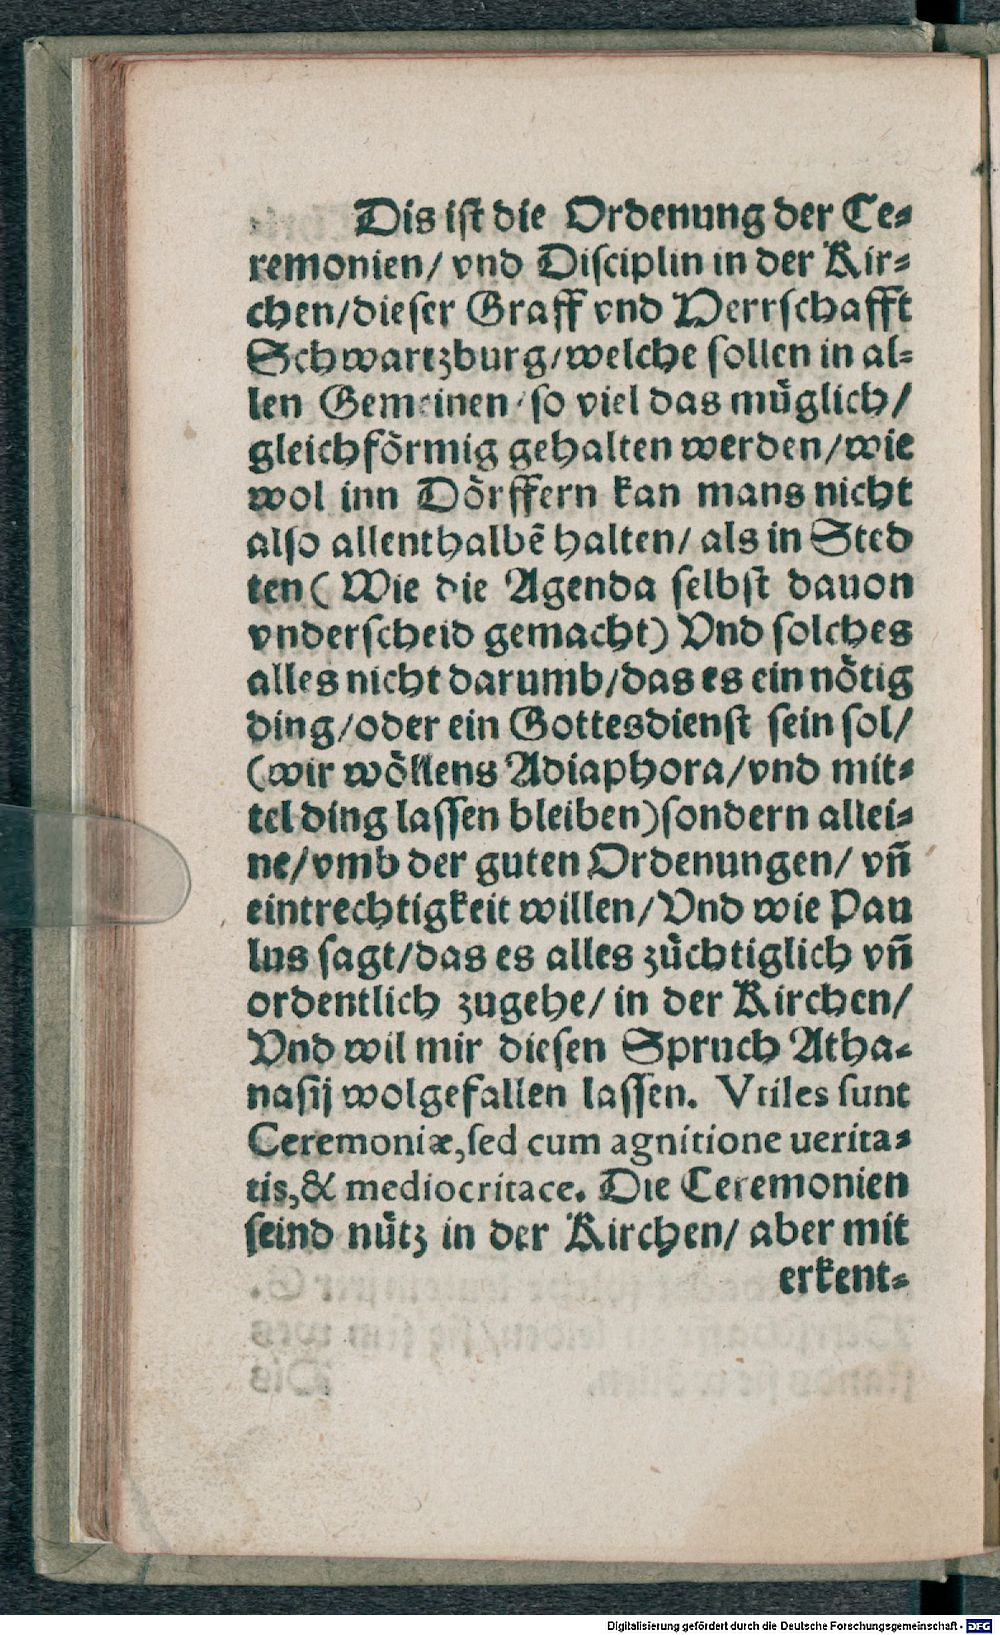 Dis ist die Ordenung der Ce⸗
remonien/ vnd Disciplin in der Kir⸗
chen/dieser Graff vnd Herrschafft
Schwartzburg/welche sollen in al⸗
len Gemeinen/so viel das muͤglich/
gleichfoͤrmig gehalten werden/wie
wol inn Doͤrffern kan mans nicht
also allenthalbẽ halten/ als in Sted
ten( Wie die Agenda selbst dauon
vnderscheid gemacht) Vnd solches
alles nicht darumb/das es ein noͤtig
ding/oder ein Gottesdienst sein sol/
(wir woͤllens Adiaphora/vnd mit⸗
tel ding lassen bleiben)sondern allei⸗
ne/vmb der guten Ordenungen/ vñ
eintrechtigkeit willen/Vnd wie Pau
lus sagt/das es alles zuͤchtiglich vñ
ordentlich zugehe/ in der Kirchen/
Vnd wil mir diesen Spruch Atha⸗
nasij wolgefallen lassen. Vtiles sunt
Ceremoniæ,sed cum agnitione uerita⸗
tis,& mediocritate. Die Ceremonien
seind nuͤtz in der Kirchen/ aber mit
erkent⸗
Digitalisierung gefördert durch die Deutsche Forschungsgemeinschaft - DFG